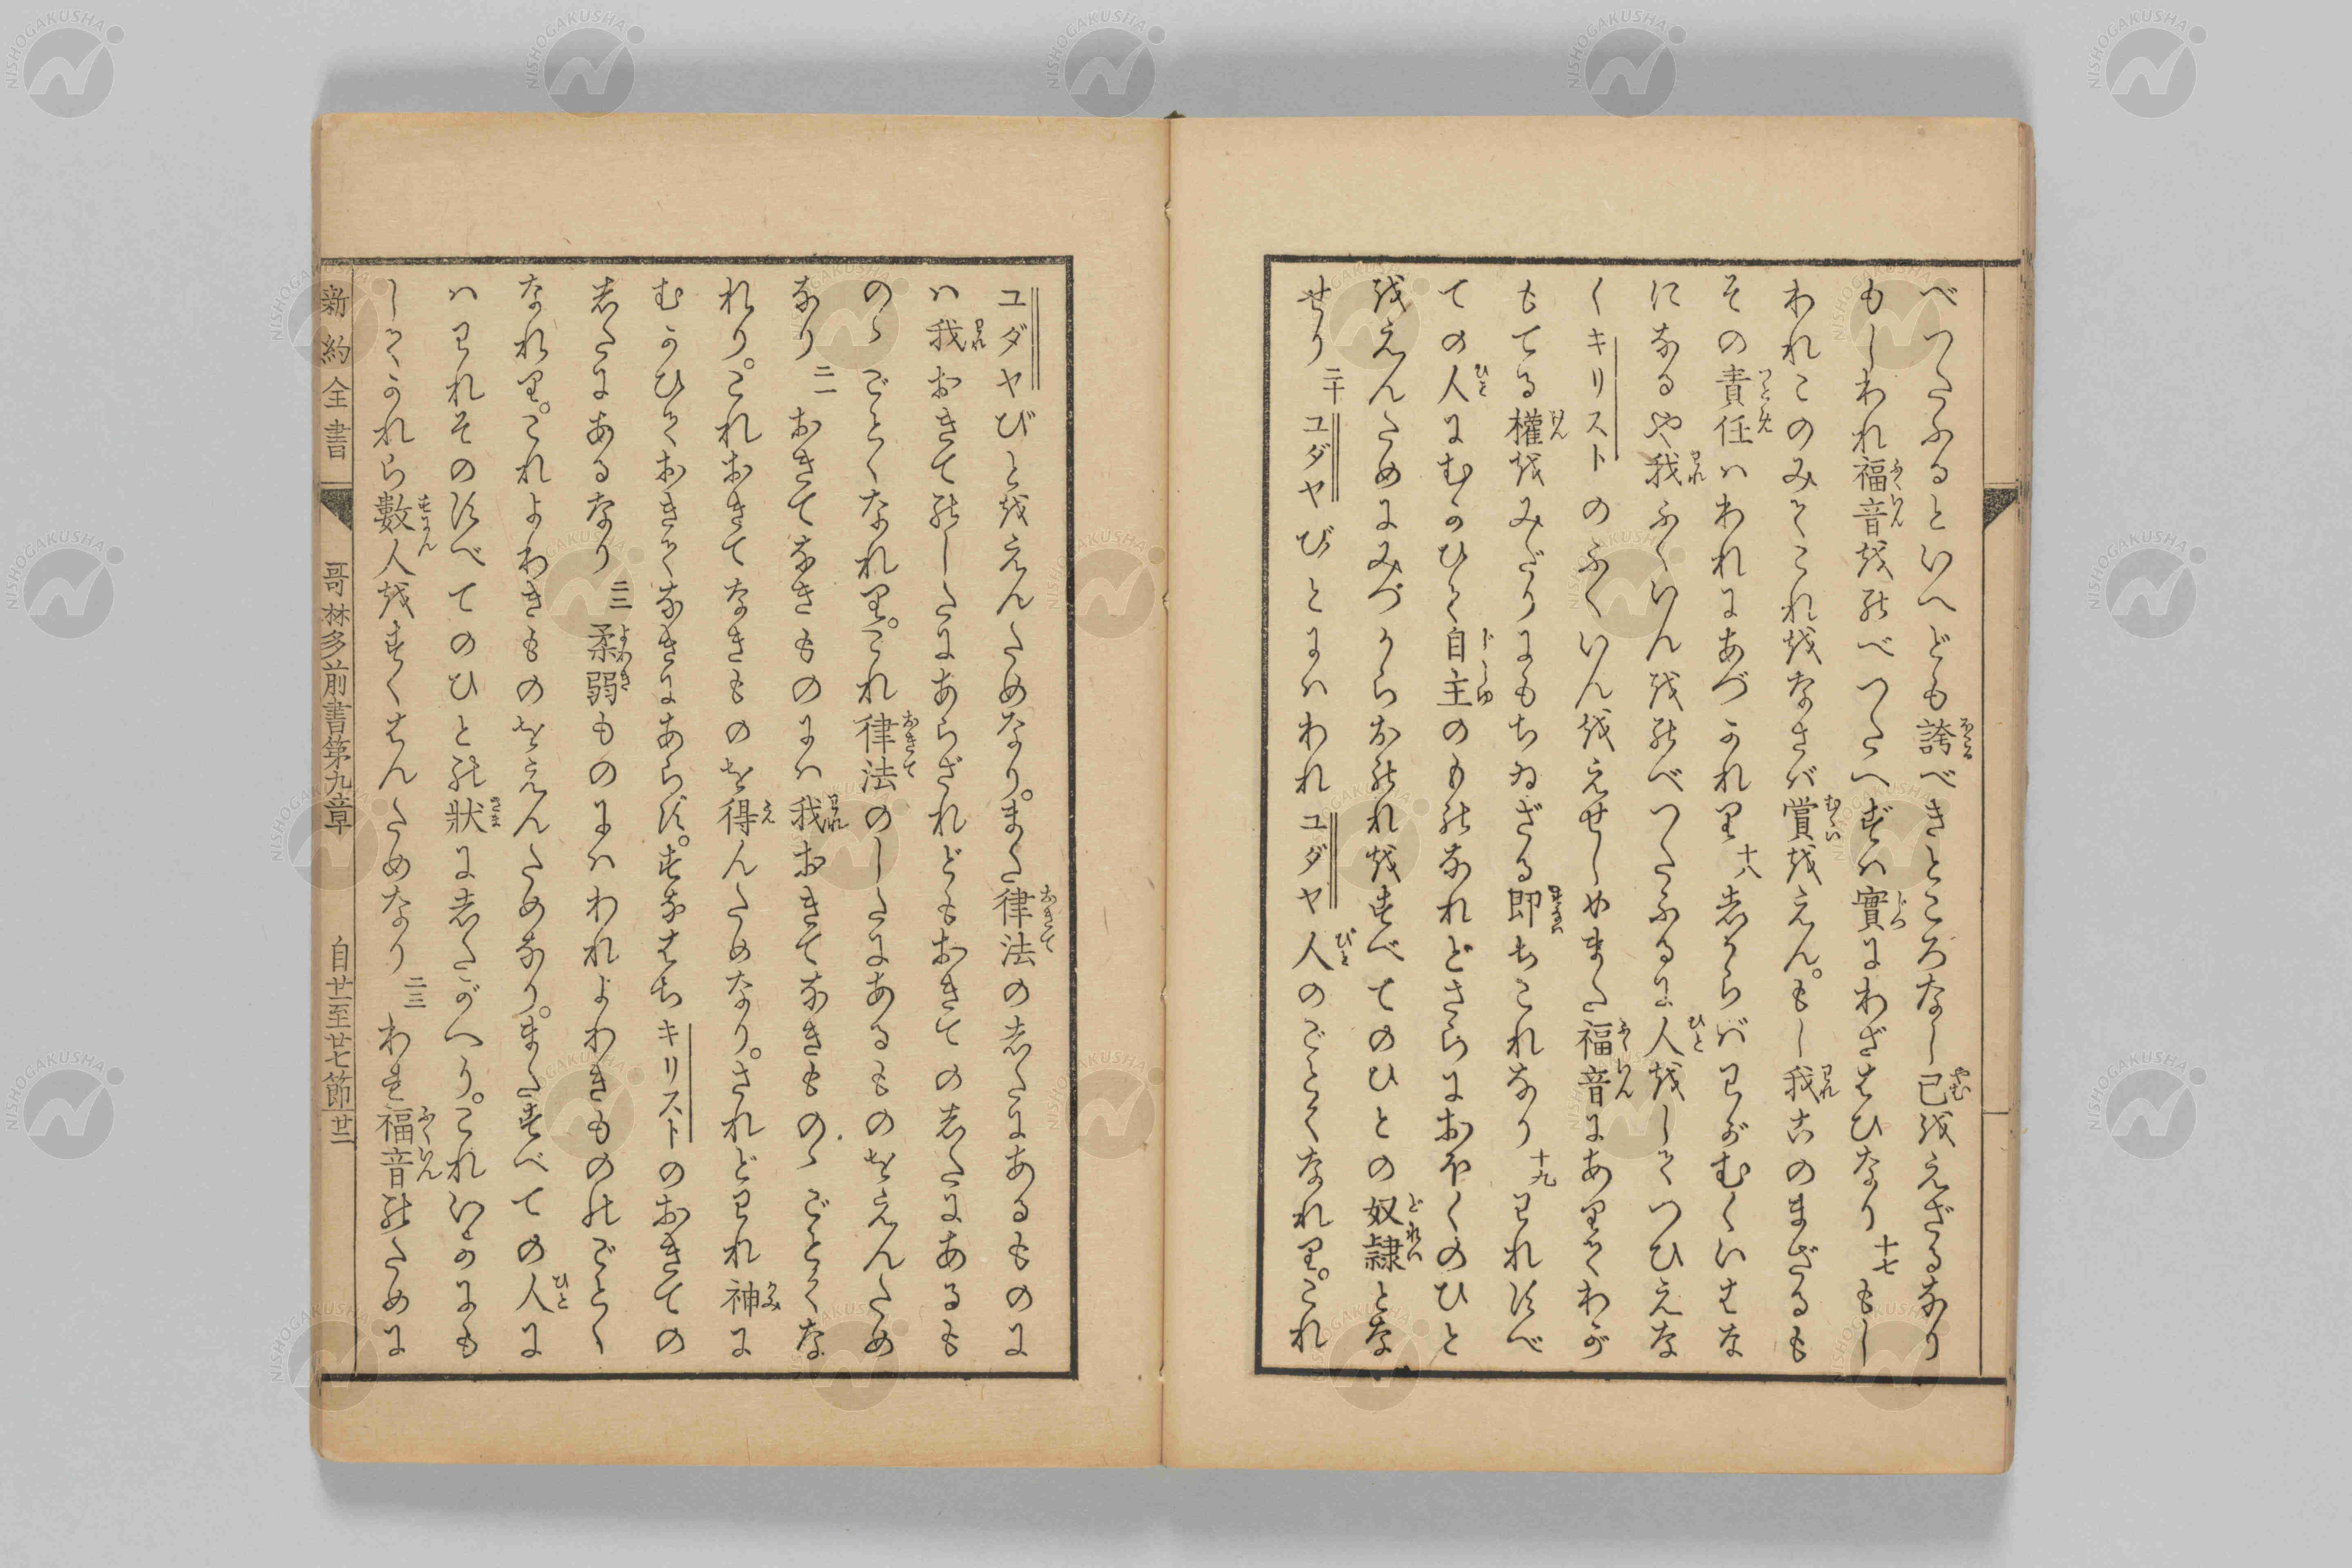 べつたふるといへども誇べきところなし已をえざるなり
もしわれ福音をのべつたへずハ實にわざはひなり十七もし
われこのみてこれをなさバ賞をえん。もし我このまざるも
その責任ハわれにあづかれり十八志からバわがむくいはな
になるや我ふくいんをのべつたふるに人をしてつひえな
くキリストのふくいんをえせしめまた福音にありてわが
もてる權をみだりにもちゐざる即ちこれなり十九われすべ
ての人にむかひて自主のものなれどさらにおほくのひと
をえんためにみづからおのれをすべてのひとの奴隷とな
せり二十ユダヤびとにハわれユダヤ人のごとくなれり。これ
ユダヤびとをえんためなり。また律法の志たにあるものに
ハ我おきてのしたにあらざれどもおきての志たにあるも
のゝごとくなれり。これ律法のしたにあるものをえんため
なり二一おきてなきものにハ我おきてなきものゝごとくな
れり。これおきてなきものを得んためなり。されどわれ神に
むかひておきてなきにあらず。すなはちキリストのおきての
志たにあるなり二二柔弱ものにハわれよわきもののごとく
なれり。これよわきものをえんためなり。またすべての人に
ハわれそのすべてのひとの狀に志たがへり。これいかにも
してかれら數人をすくはんためなり二三わを福音のために
新約全書 哥林多前書第九章 自廿一至廿七節 廿二
NISHOGAKUSHA